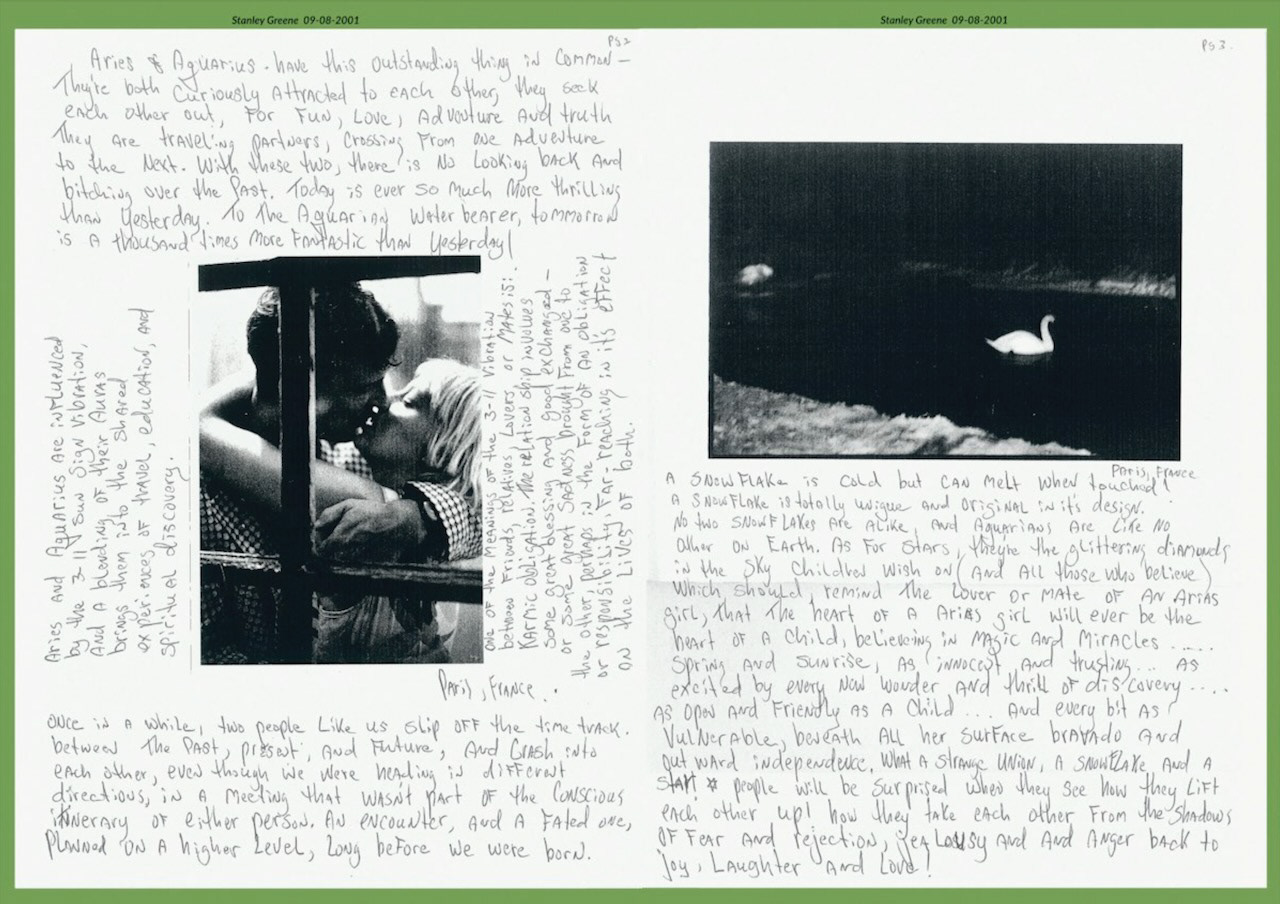 Stanley Greene 09-08-2001
Pg 2
Aries & Aquarius. have this outstanding thing in Common –
They're both Curiously Attracted to each other, they seek
each other out, For Fun, Love, Adventure And truth
They are traveling partners, Crossing From one Adventure
to the Next. With these two, there is No Looking back And
bitching over the Past. Today is ever so much More thrilling
than Yesterday. To The Aquarian Water bearer, tommorrow
is A thousand times More Fantastic than Yesterday!
Aries And Aquarius Are influenced
by the 3-11 Sun Sign Vibration,
And A blending of their Auras
brings them into the Shared
experiences of travel, education, and
Spiritual discovery.
One of the Meanings of the 3-11 Vibration
between Friends, relatives, Lovers or Mates is:
Karmic obligation. The relation ship involves
Some great blessing and good exchanged –
or Some great Sadness brought From one to
the other, perhaps in the Form of An obligation
or responsibility, Far-reaching in its effect
on the Lives of both.
Paris, France.
Once in a while, two people Like us slip off the time track.
between The Past, present, And Future, And Crash into
each other, even though we were heading in different
directions, in A Meeting that wasn't part of the Conscious
itinerary of either person. An encounter, And A Fated one,
Planned on A higher Level, Long before we were born.
Stanley Greene 09-08-2001
Pg 3.
Paris, France
A SNowFlake is Cold but CAN Melt When touched!
A SNowFlake is totally unique and original in it's design.
No two SNowFlakes Are Alike, And Aquarians Are Like No
other on Earth. As For Stars, they're the glittering diamonds
in the Sky Children Wish on (And All those who believe)
Which should, remind The Lover or Mate of An Aries
girl, that The heart of A Aries girl will ever be the
heart of A Child, believing in Magic And Miracles ......
Spring And Sunrise, As innocent And trusting... As
excited by every New Wonder And thrill of discovery ....
As Open And Friendly As A Child ... And every bit As
Vulnerable, beneath All her Surface bravado And
outward independence. What A Strange Union, A SNowFlake And A
Star * people will be Surprised when they see how they Lift
each other up! how they take each other From the Shadows
of Fear And rejection, jealousy And And Anger back to
joy, Laughter And Love!